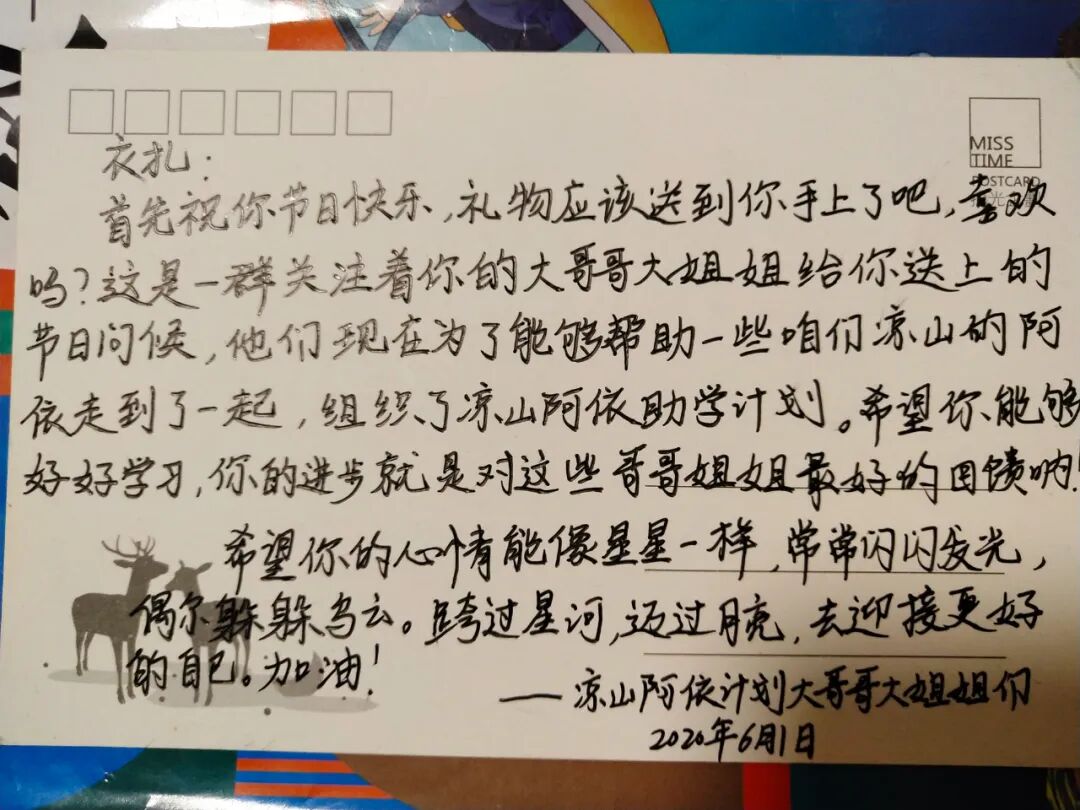 MISS
TIME
POSTCARD
衣扎：
首先祝你节日快乐，礼物应该送到你手上了吧，喜欢
吗？这是一群关注着你的大哥哥大姐姐给你送上的
节日问候，他们现在为了能够帮助一些咱们凉山的阿
依走到了一起，组织了凉山阿依助学计划。希望你能够
好好学习，你的进步就是对这些哥哥姐姐最好的回馈呐！
希望你的心情能像星星一样，常常闪闪发光，
偶尔躲躲乌云。跨过星河，迈过月亮，去迎接更好
的自己。加油！
——凉山阿依计划大哥哥大姐姐们
2020年6月1日